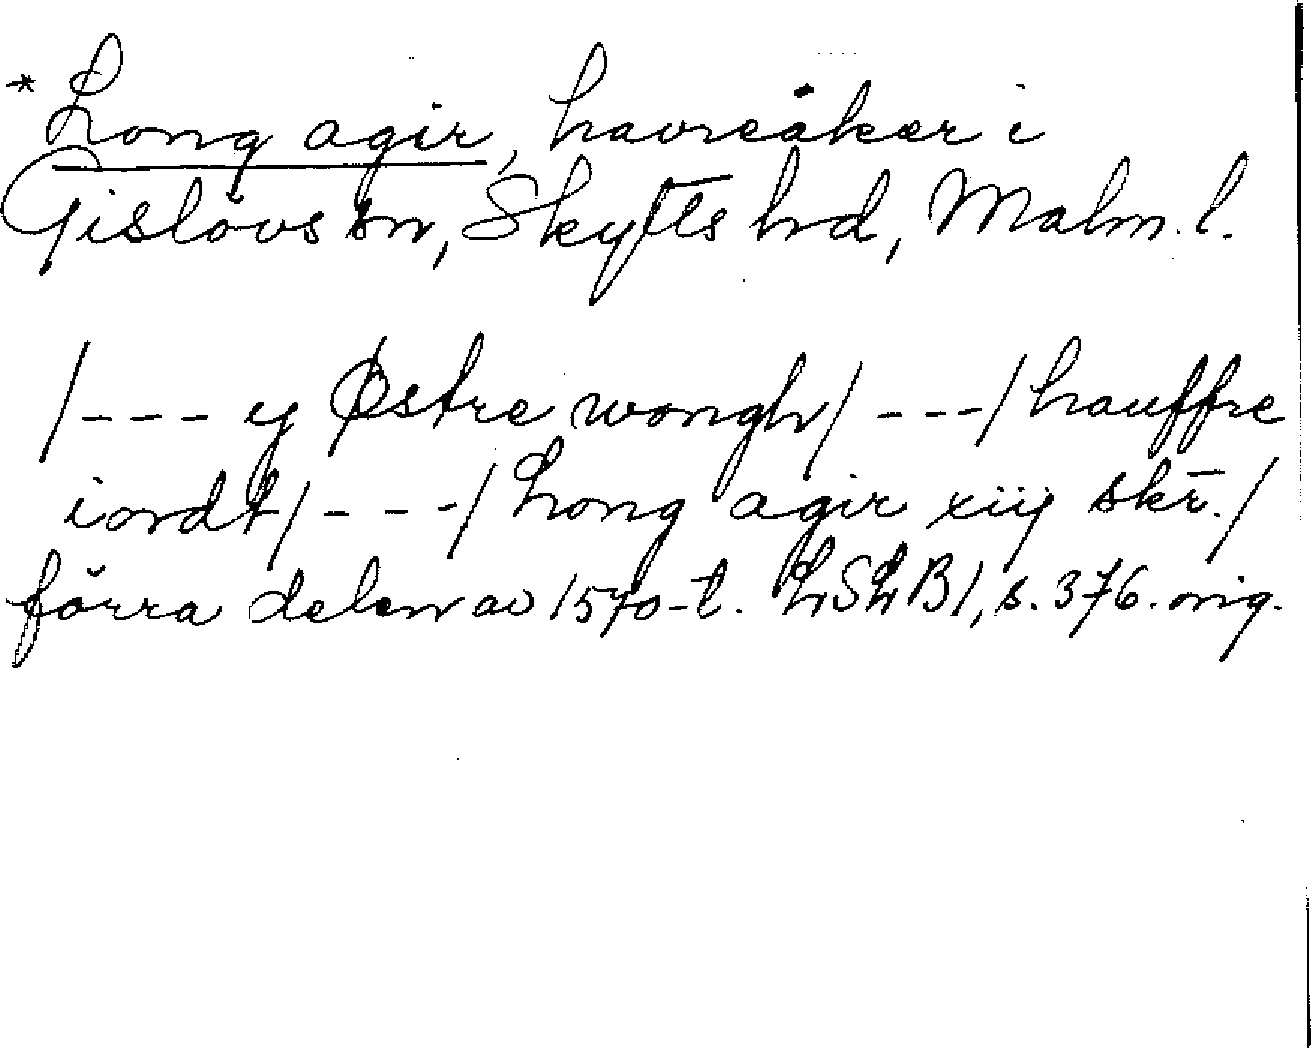 * Long agir, havreåker i
Gislövs sn, Skytts hd, Malm. l.
/--- y Østre wongh/ ---/ hauffre
iordt/ ---/ Long agir xiij skr̄./
förra delen av 1570-t. LSLB 1, s. 376. orig.